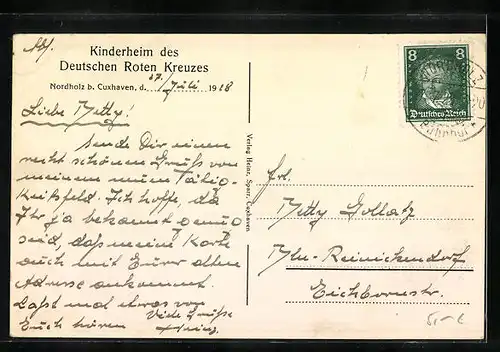 Kinderheim des
Deutschen Roten Kreuzes
Nordholz b. Cuxhaven, d. 27./Juli 1928
Liebe Netty!
Sende Dir einen
recht schönen Gruß von
meinem neuen Tätig-
keitsfeld. Ich hoffe, da
Ihr ja bekannt genug
seid, daß meine Karte
auch mit Eurer alten
Adresse ankommt.
Laßt mal etwas von
Euch hören Viele Grüße
Verlag Heinr. Sparr, Cuxhaven
8 8
Deutsches Reich
Bahnhof
Frl.
Netty Gollatz
Bln-Reinickendorf
Eichbornstr.